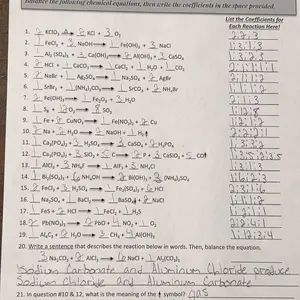 Balance the following chemical equations, then write the coefficients in the space provided.
List the Coefficients for
Each Reaction Here!
1. 2 KClO₃ → 2 KCl + 3 O₂ 2:2:3
2. FeCl₃ + 3 NaOH → Fe(OH)₃ + 3 NaCl 1:3:1:3
3. Al₂(SO₄)₃ + 3 Ca(OH)₂ → 2 Al(OH)₃ + 3 CaSO₄ 1:3:2:3
4. 2 HCl + CaCO₃ → CaCl₂ + H₂O + CO₂ 2:1:1:1:1
5. 2 NaBr + Ag₂SO₄ → Na₂SO₄ + 2 AgBr 2:1:1:2
6. SrBr₂ + (NH₄)₂CO₃ → SrCO₃ + 2 NH₄Br 1:1:1:2
7. 2 Fe(OH)₃ → Fe₂O₃ + 3 H₂O 2:1:3
8. S₈ + 12 O₂ → 8 SO₃ 1:12:8
9. Fe + 2 CuNO₃ → Fe(NO₃)₂ + 2 Cu 1:2:1:2
10. 2 Na + 2 H₂O → 2 NaOH + H₂ 2:2:2:1
11. Ca₃(PO₄)₂ + 3 H₂SO₄ → 3 CaSO₄ + 2 H₃PO₄ 1:3:3:2
12. Ca₃(PO₄)₂ + 3 SiO₂ + 5 C → 2 P + 3 CaSiO₃ + 5 CO
13. AlCl₃ + 3 NH₄F → AlF₃ + 3 NH₄Cl 1:3:1:3
14. Bi₂(SO₄)₃ + 6 NH₄OH → 2 Bi(OH)₃ + 3 (NH₄)₂SO₄ 1:6:2:3
15. 2 FeCl₃ + 3 H₂SO₄ → Fe₂(SO₄)₃ + 6 HCl 2:3:1:6
16. Na₂SO₄ + BaCl₂ → BaSO₄ + 2 NaCl 1:1:1:2
17. FeS + 2 HCl → FeCl₂ + H₂S 1:2:1:1
18. 2 Pb(NO₃)₂ → 2 PbO + 4 NO₂ + O₂ 2:2:4:1
19. Al₄C₃ + H₂O → 3 CH₄ + Al(OH)₃
20. Write a sentence that describes the reaction below in words. Then, balance the equation.
3 Na₂CO₃ + 2 AlCl₃ → 6 NaCl + Al₂(CO₃)₃
Sodium Carbonate and Aluminum Chloride produce
Sodium Chloride and Aluminum Carbonate
21. In question #10 & 12, what is the meaning of the ↑ symbol? gas